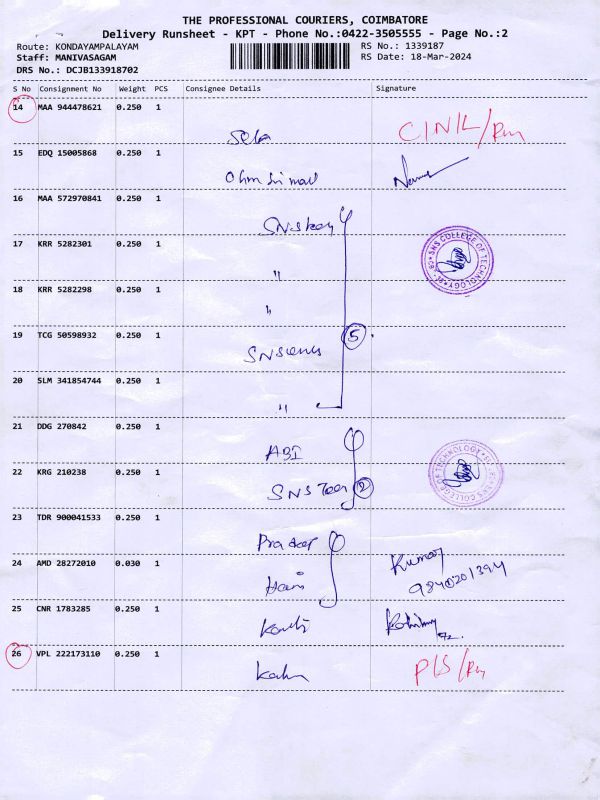 THE PROFESSIONAL COURIERS, COIMBATORE
Delivery Runsheet - KPT - Phone No.:0422-3505555 - Page No.:2
Route: KONDAYAMPALAYAM
RS No.: 1339187
Staff: MANIVASAGAM
RS Date: 18-Mar-2024
DRS No.: DCJB133918702
S No Consignment No Weight PCS Consignee Details Signature
14 MAA 944478621 0.250 1
15 EDQ 15005868 0.250 1
16 MAA 572970841 0.250 1
SNS
17 KRR 5282301 0.250 1
SNS COLLEGE OF TECHNOLOGY
"
18 KRR 5282298 0.250 1
"
19 TCG 50598932 0.250 1
5
20 SLM 341854744 0.250 1
"
21 DDG 270842 0.250 1
ABI
22 KRG 210238 0.250 1
SNS COLLEGE OF TECHNOLOGY
SNS 2
23 TDR 900041533 0.250 1
24 AMD 28272010 0.030 1
Kumar
Hari
25 CNR 1783285 0.250 1
26 VPL 222173110 0.250 1